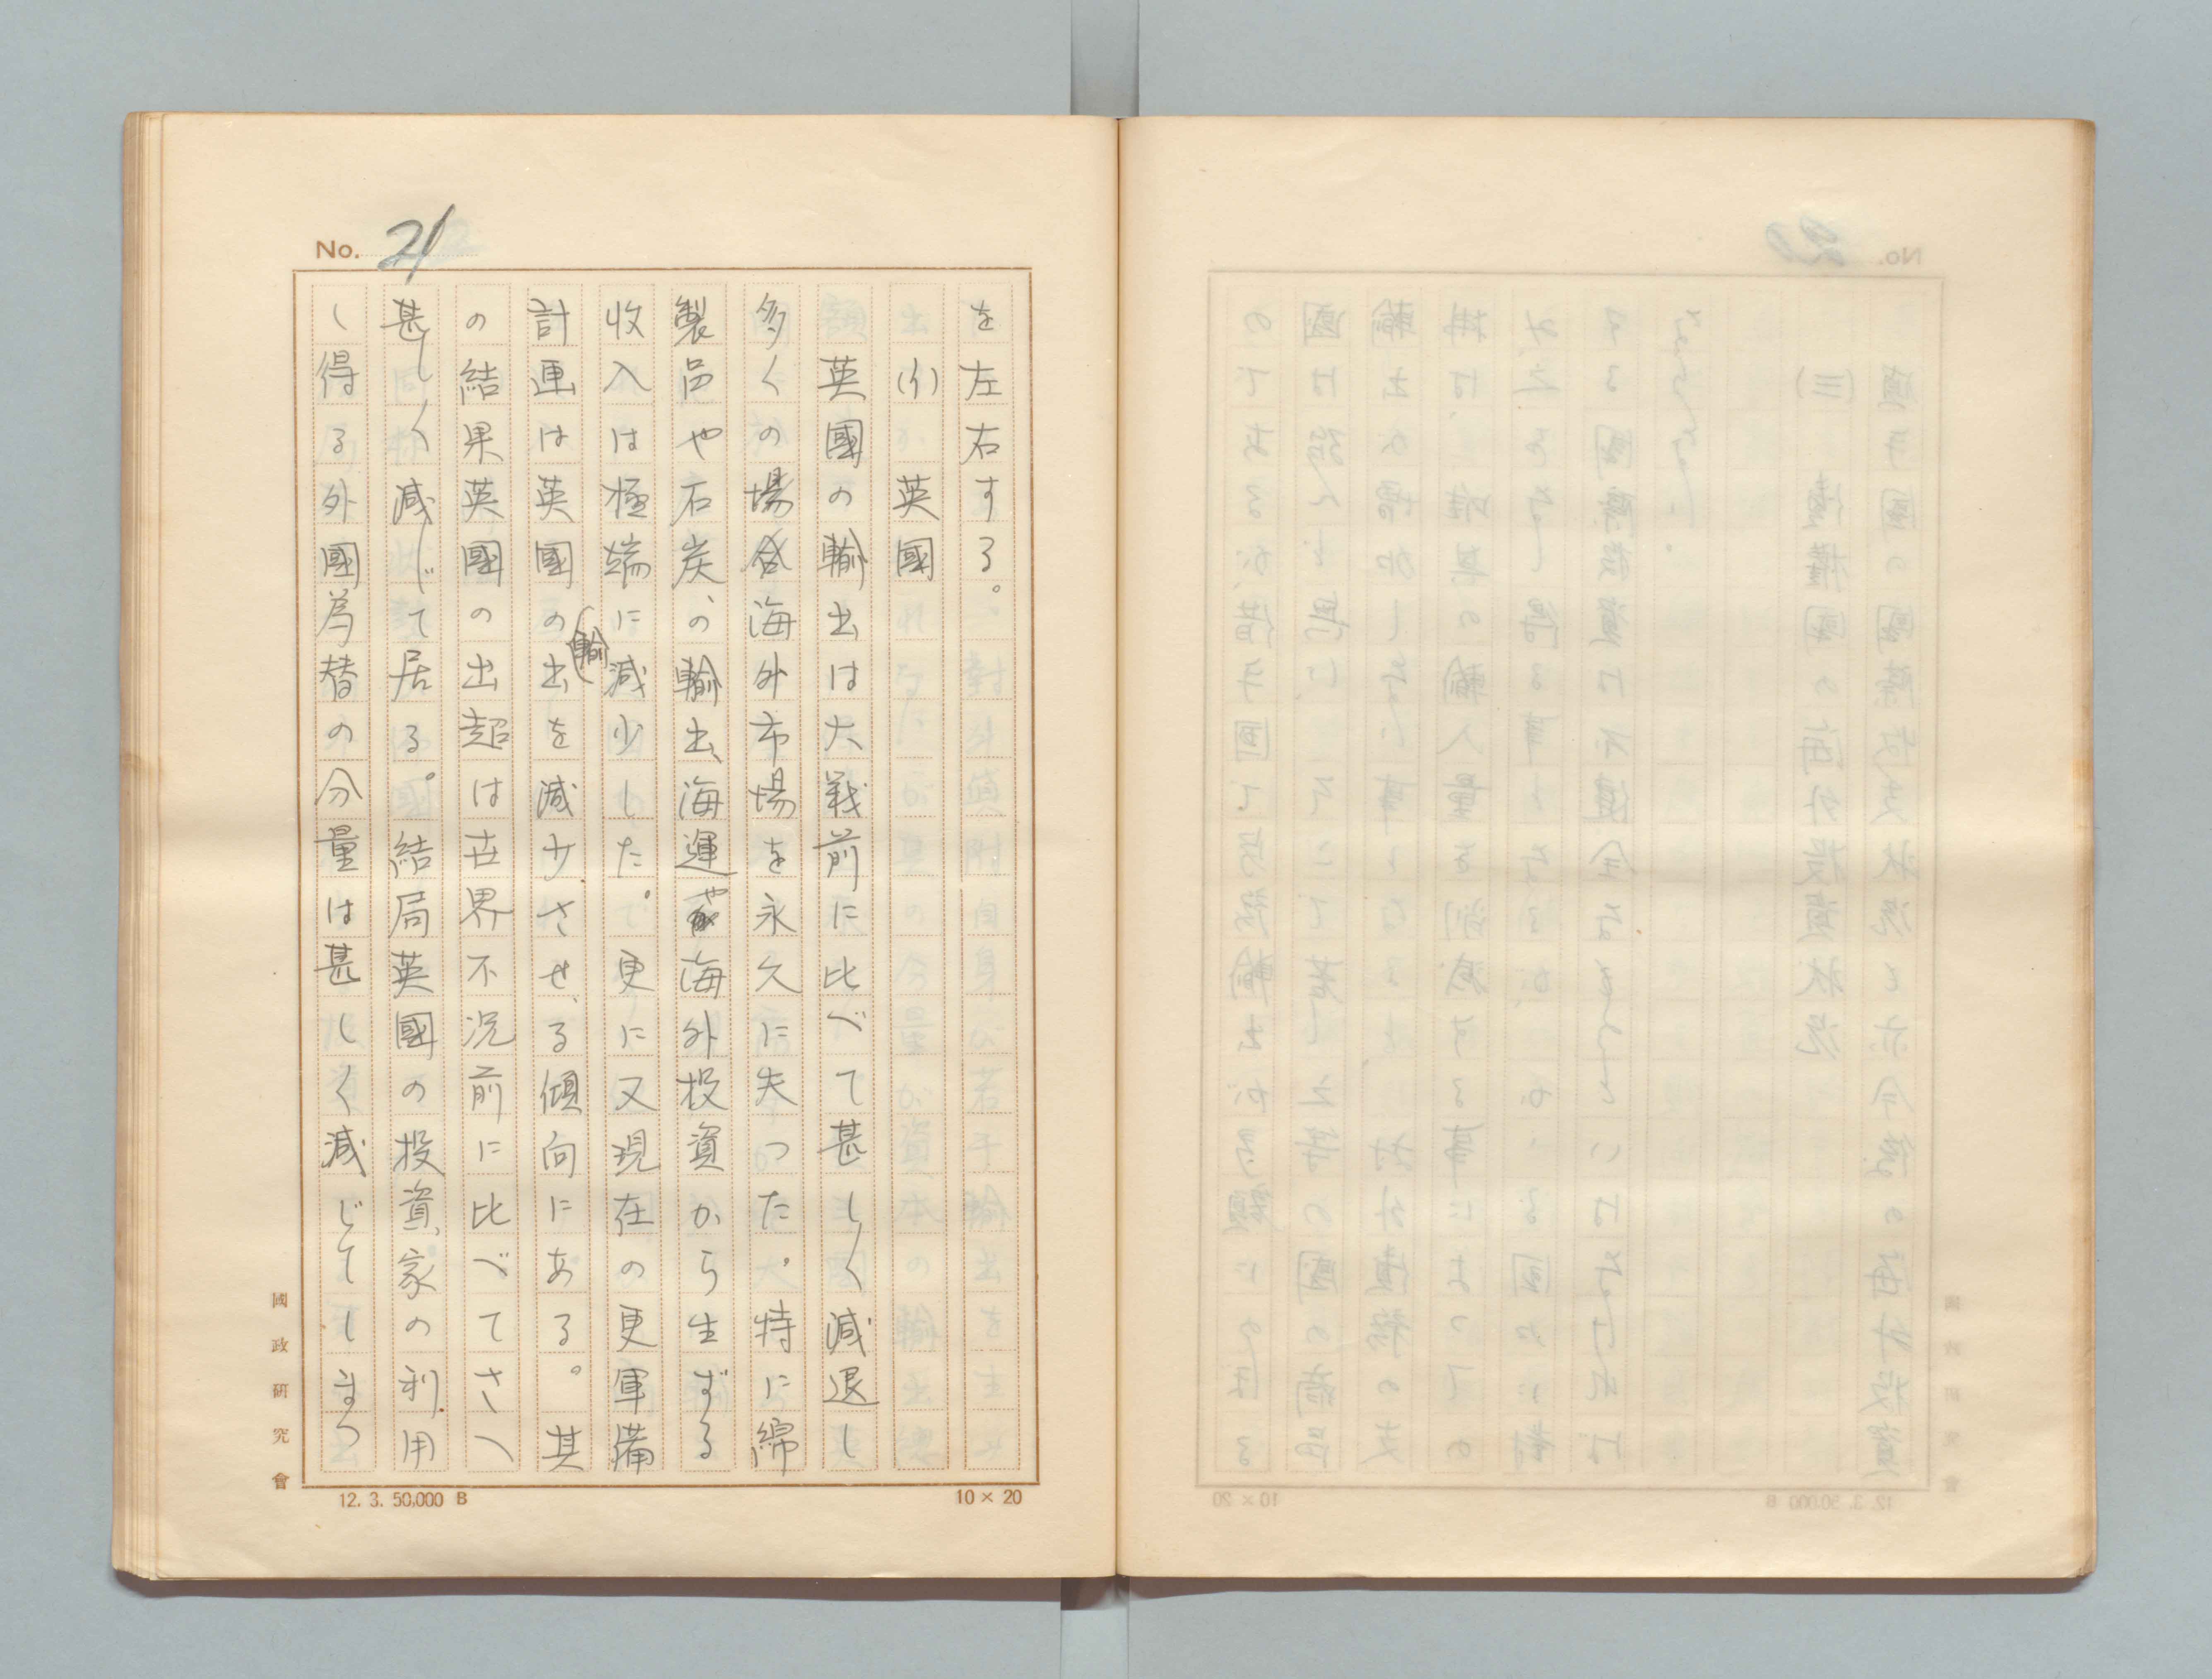 No. 21
を左右する。
(イ) 英國
英國の輸出は大戦前に比べて甚しく減退し
多くの場合海外市場を永久に失つた。特に綿
製品や石炭の輸出、海運や海外投資から生ずる
收入は極端に減少した。更に又現在の更軍備
計画は英國の輸出を減少させる傾向にある。其
の結果英國の出超は世界不況前に比べてさへ
甚しく減じて居る。結局英國の投資家の利用
し得る外國為替の分量は甚しく減じてしまつ
國政研究會
12. 3. 50,000 B
10×20